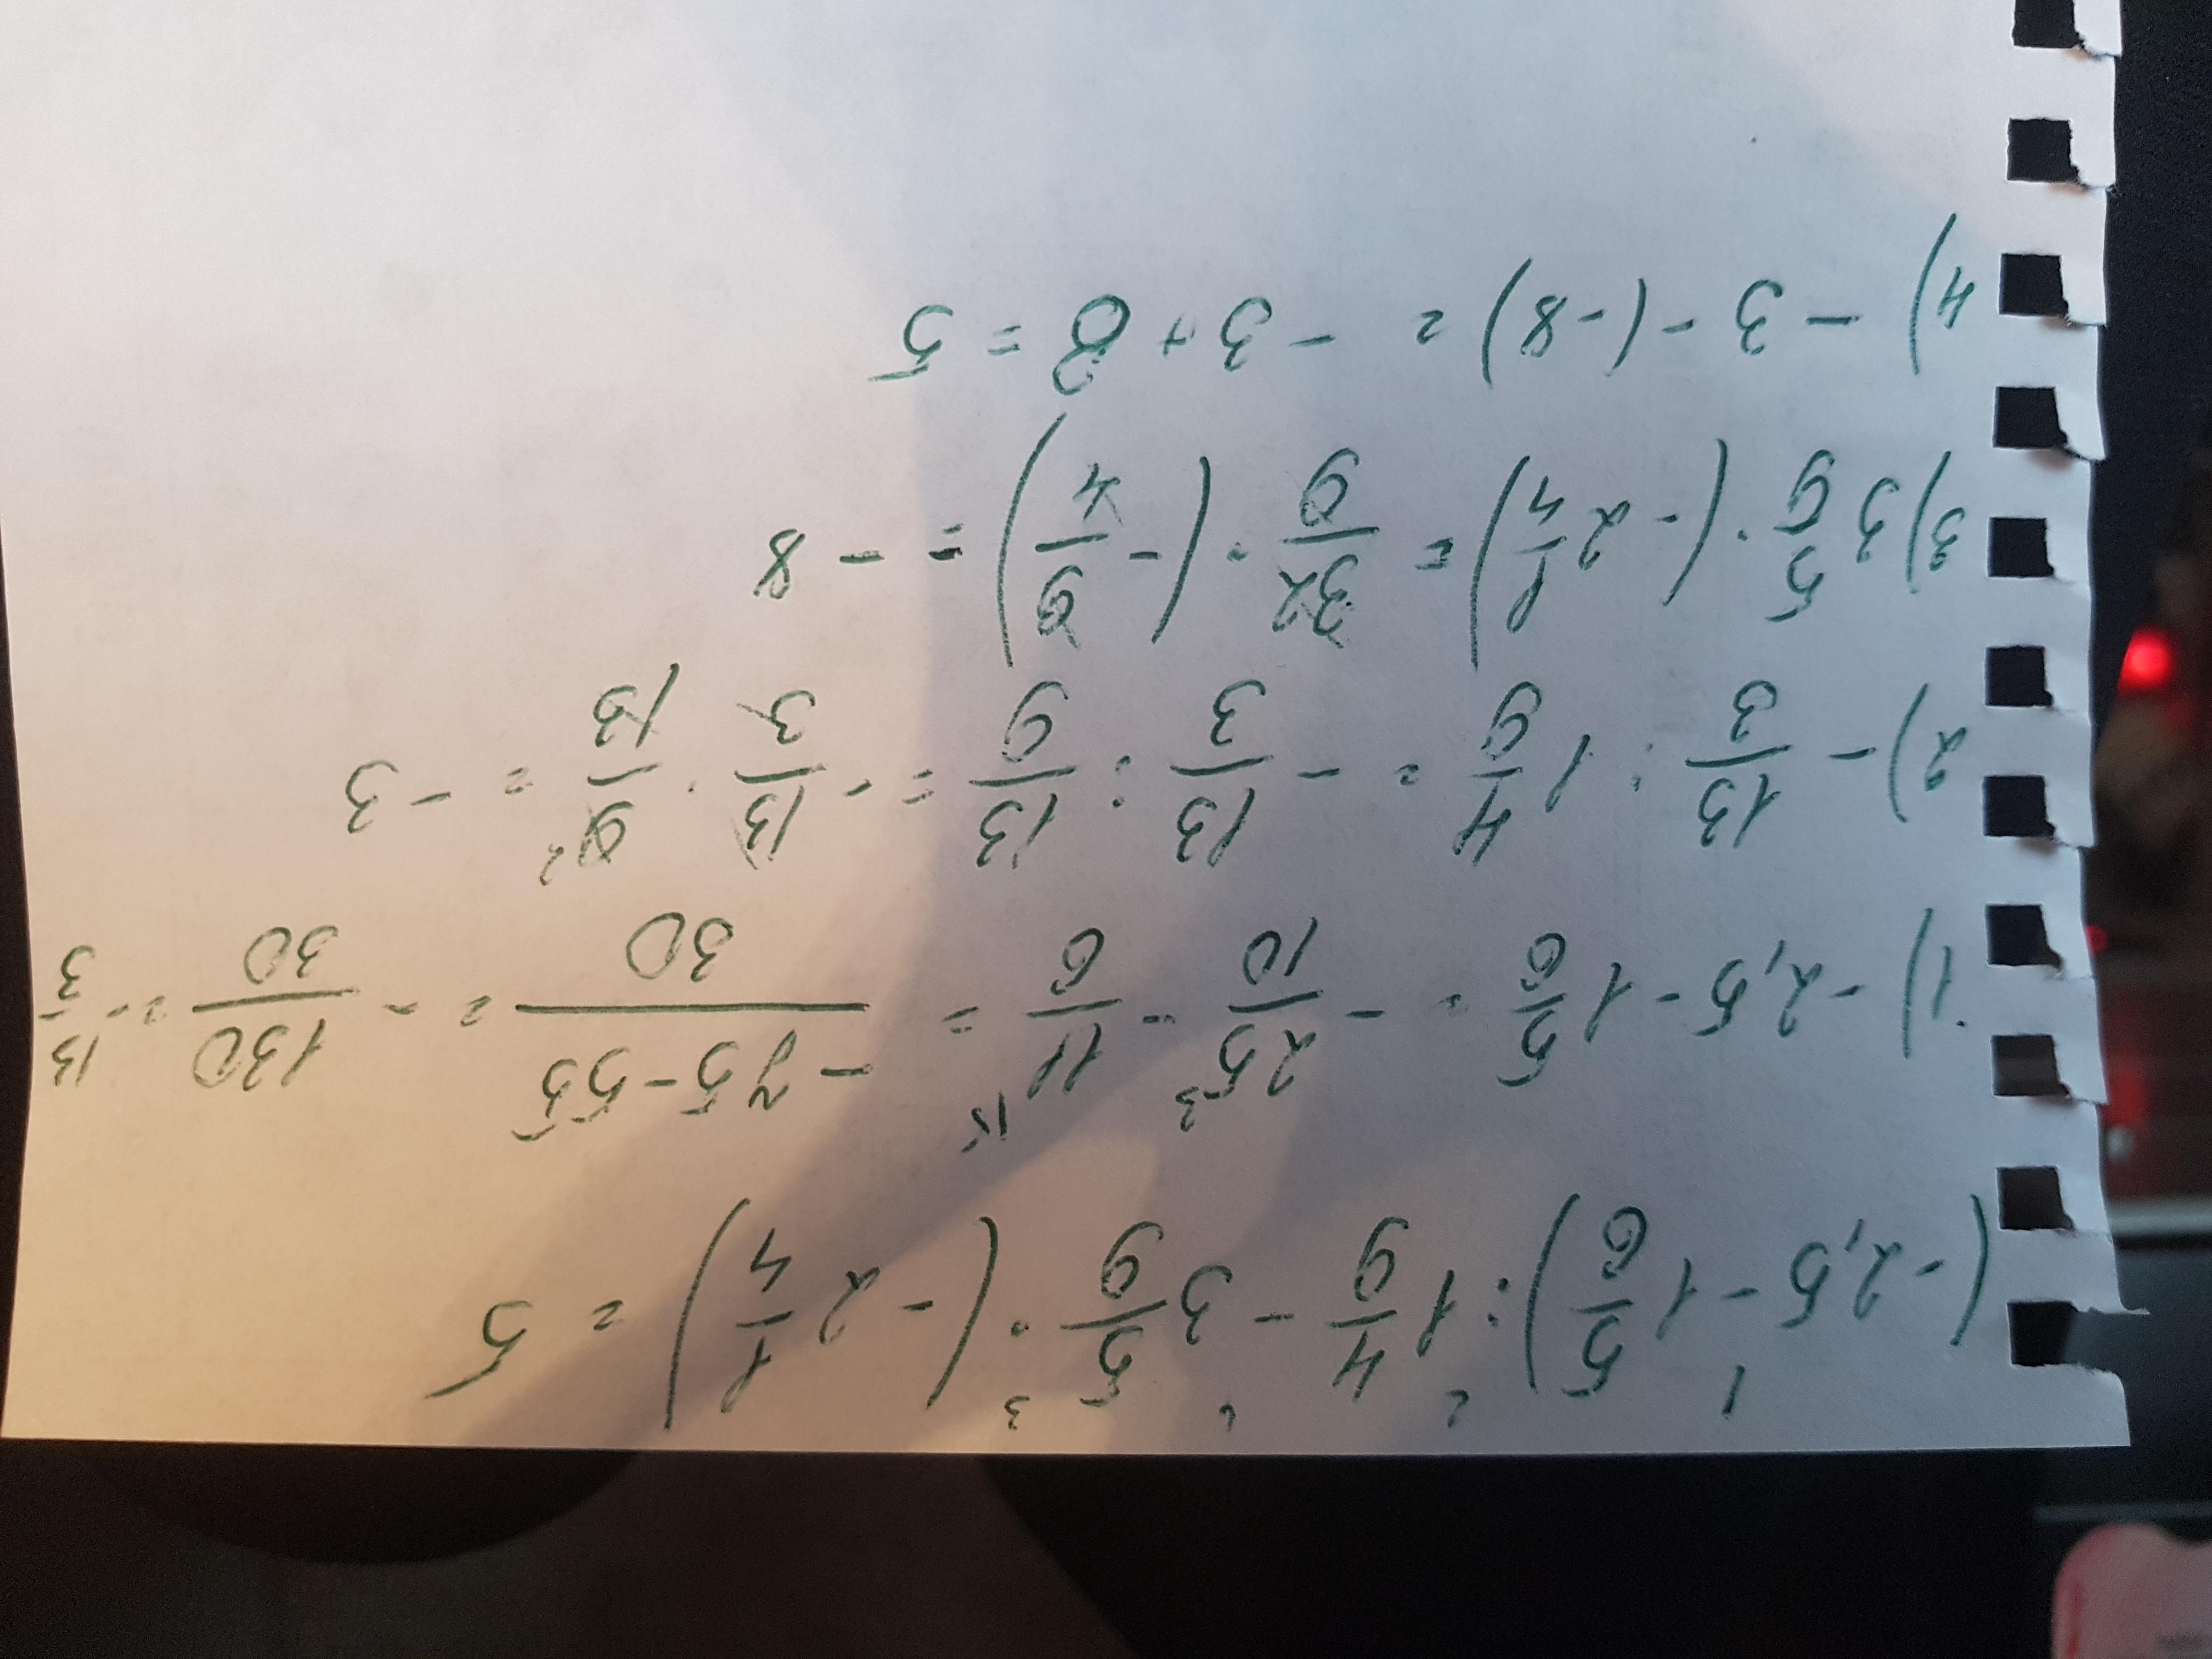 (-2,5 - 1 5/6) : 1 4/9 - 3 5/9 · (-2 1/4) = 5
1) -2,5 - 1 5/6 = - 25/10 - 11/6 = (-75-55)/30 = - 130/30 = - 13/3
2) - 13/3 : 1 4/9 = - 13/3 : 13/9 = - 13/3 · 9/13 = - 3
3) 3 5/9 · (-2 1/4) = 32/9 · (- 9/4) = - 8
4) - 3 - (-8) = - 3 + 8 = 5